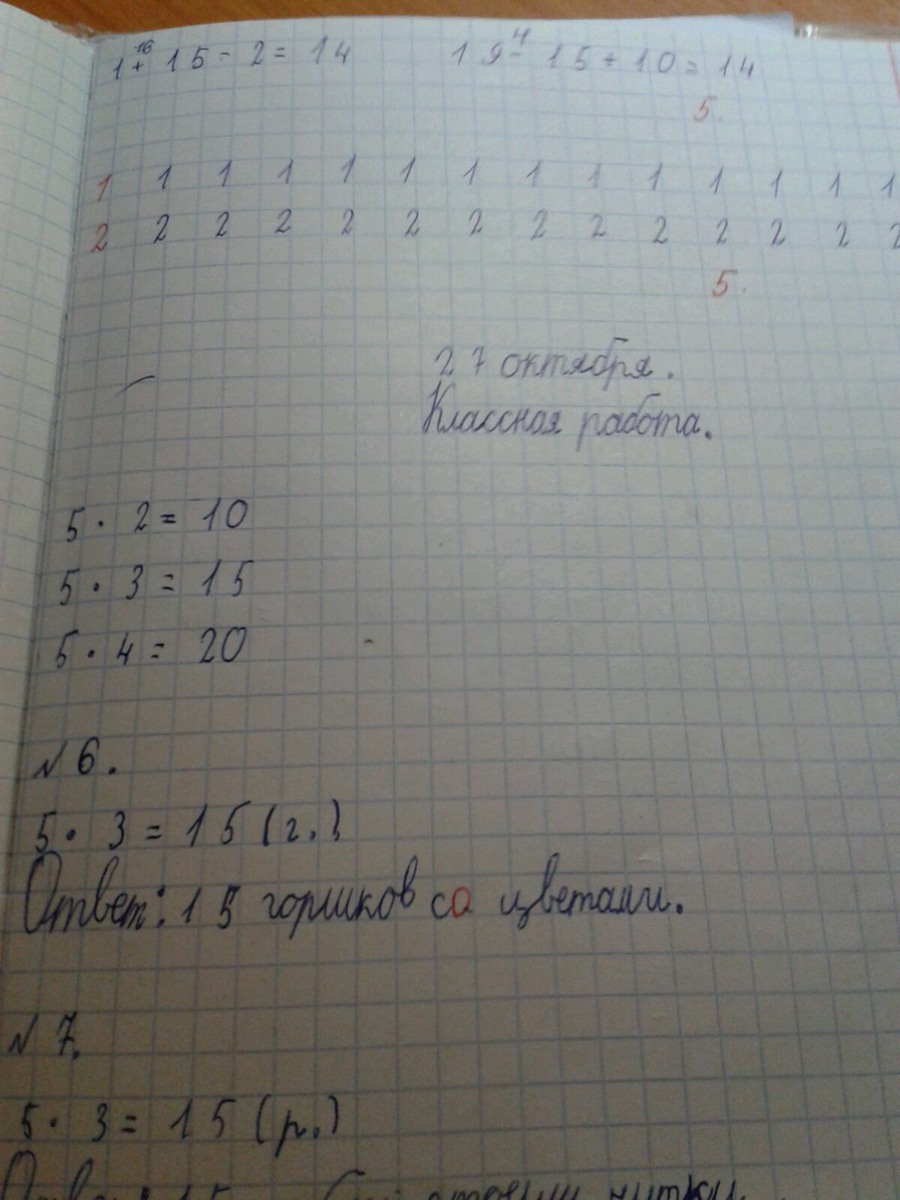 16 4
1 + 15 - 2 = 14 19 - 15 + 10 = 14
5.
1 1 1 1 1 1 1 1 1 1 1 1 1 1
2 2 2 2 2 2 2 2 2 2 2 2 2 2
5.
27 октября.
Классная работа.
5 · 2 = 10
5 · 3 = 15
5 · 4 = 20
№ 6.
5 · 3 = 15 (г.)
Ответ: 15 горшков со цветами.
№ 7.
5 · 3 = 15 (р.)
Ответ: 15